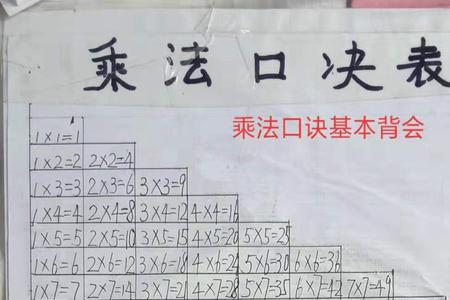 乘法口决表
乘法口诀基本背会
1×1=1
1×2=2 2×2=4
1×3=3 2×3=6 3×3=9
1×4=4 2×4=8 3×4=12 4×4=16
1×5=5 2×5=10 3×5=15 4×5=20 5×5=25
1×6=6 2×6=12 3×6=18 4×6=24 5×6=30 6×6=36
1×7=7 2×7=14 3×7=21 4×7=28 5×7=35 6×7=42 7×7=49